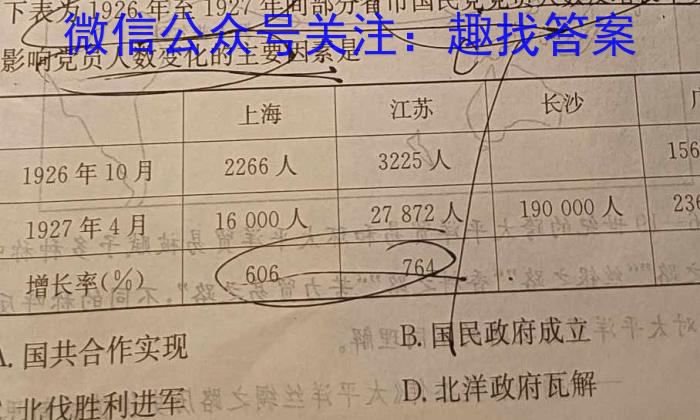 下表为1926年至1927年间部分省市国民党党员人数
微信公众号关注：趣找答案
影响党员人数变化的主要因素是
上海 江苏 长沙
1926年10月 2266人 3225人 156
1927年4月 16 000人 27 872人 190 000人 236
增长率(%) 606 764
A. 国共合作实现 B. 国民政府成立
北伐胜利进军 D. 北洋政府瓦解